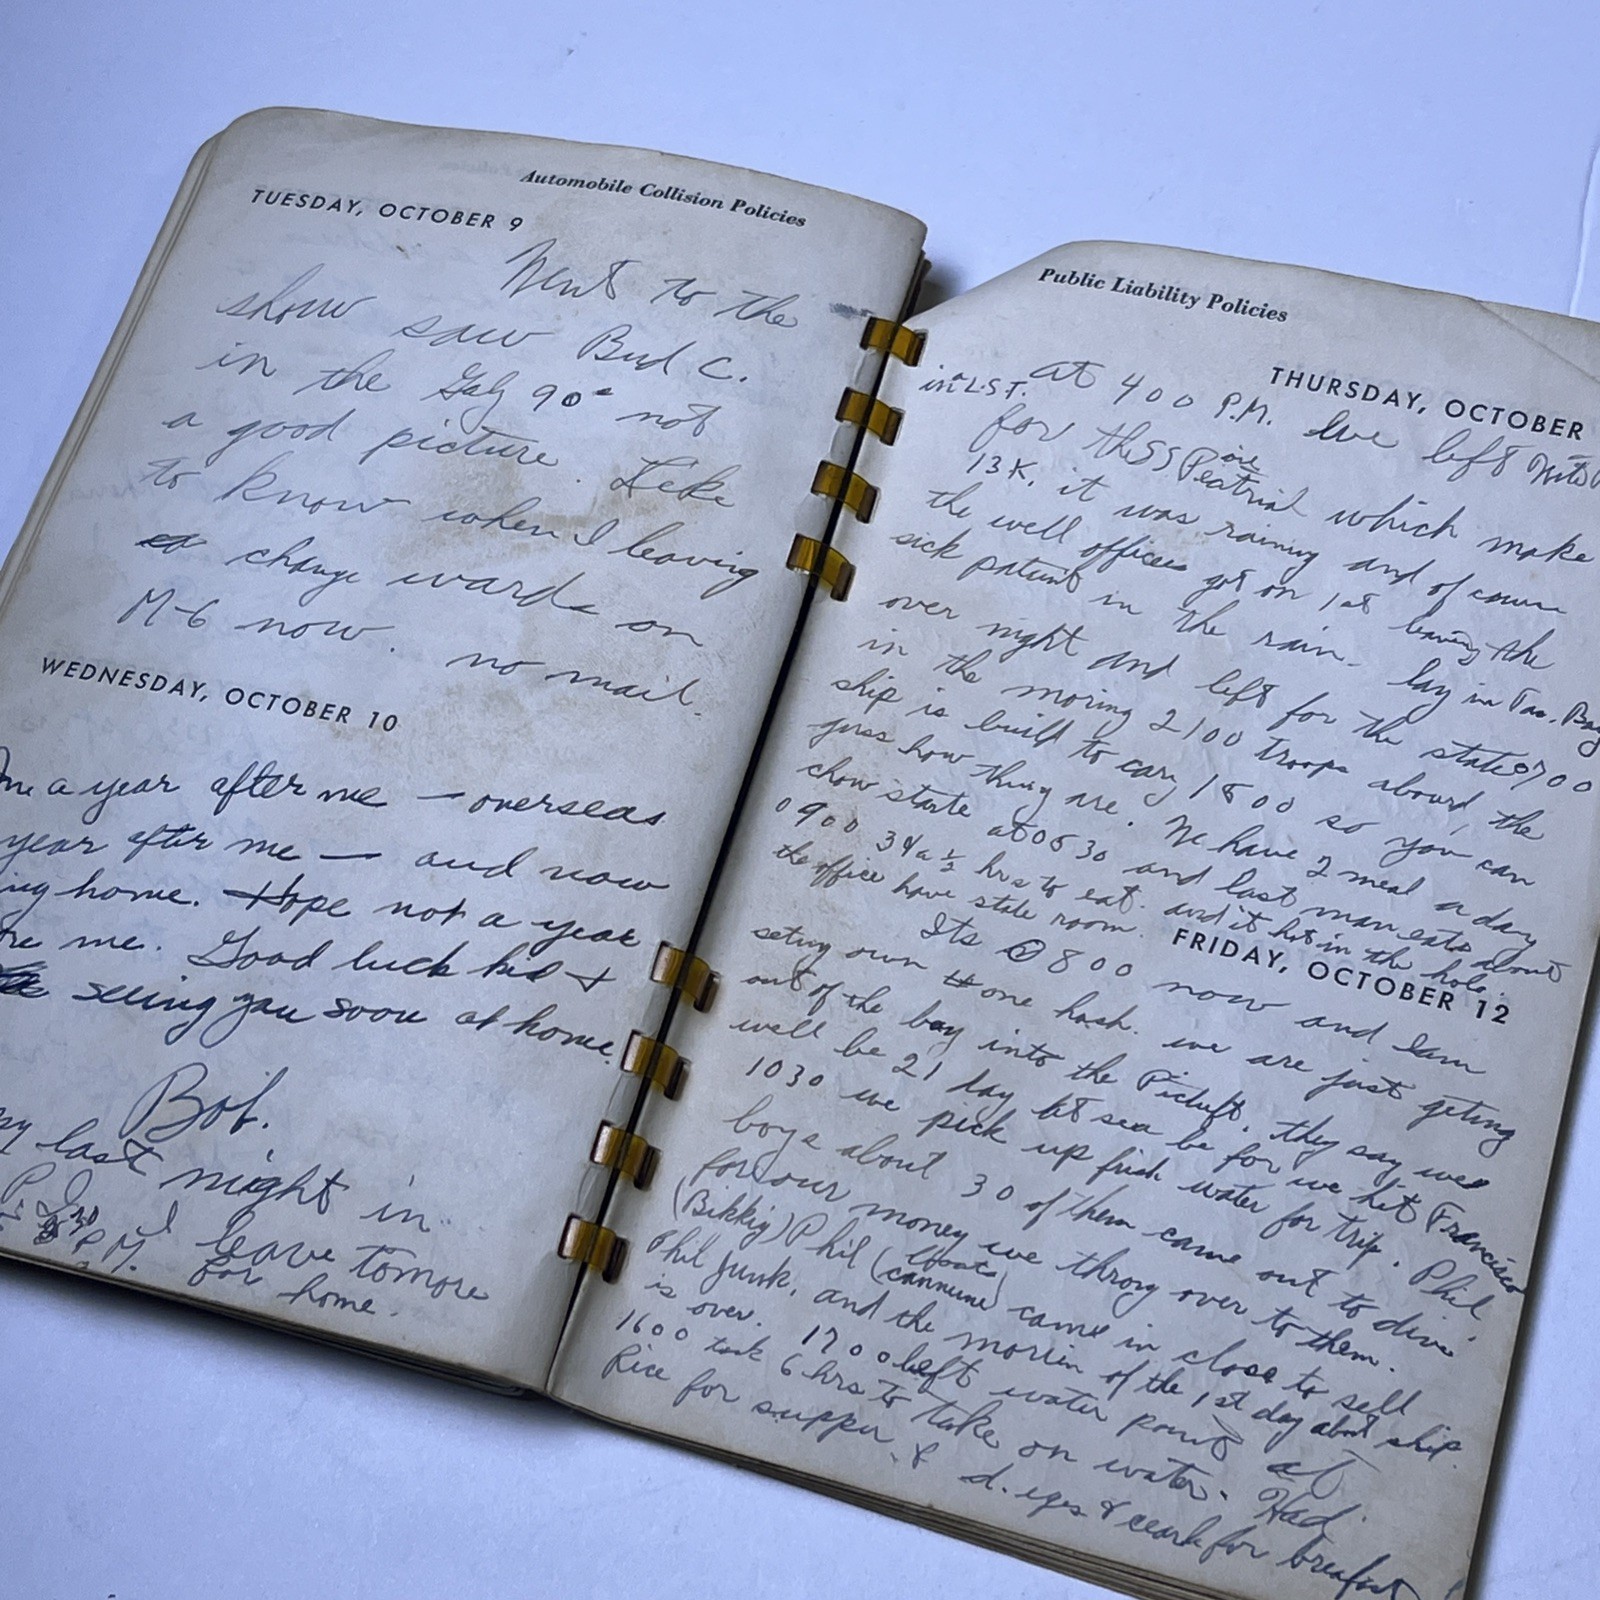 Automobile Collision Policies
TUESDAY, OCTOBER 9
Went to the
show saw Bud C.
in the Gay 90s not
a good picture. Like
to know when I leaving
change wards on
M-6 now. no mail.
WEDNESDAY, OCTOBER 10
a year after me — overseas
year after me — and now
ing home. Hope not a year
re me. Good luck kid +
seeing you soon at home.
Bob.
last night in
P.I. I leave tomore
P.M. for home.
Public Liability Policies
THURSDAY, OCTOBER
in a L.S.T. at 400 P.M. we left
for the SS which make
13 K, it was raining and of course
the well officers got on 1st leaving the
sick patient in the rain. lay in Bay
over night and left for the states 0700
in the moring 2100 troops abourd, the
ship is build to cary 1800 so you can
guss how thing are. We have 2 meal a day
chow starte at 0630 and last man eats about
0900 3 hrs to eat. and it hot in the hole.
the office have state room.
FRIDAY, OCTOBER 12
Its 0800 now and I am
seting own one hash. we are just geting
out of the bay into the they say wee
well be 21 day at sea be for we hit Francisco
1030 we pick up fresh water for trip. Phil
boys about 30 of them came out to dive
for our money we throy over to them.
Phil (Boats cannune) came in close to sell
Phil junk, and the of the 1st day about ship
is over. 1700 left water point at
1600 took 6 hrs to take on water. Had
Rice for supper & d. eges & for breafast